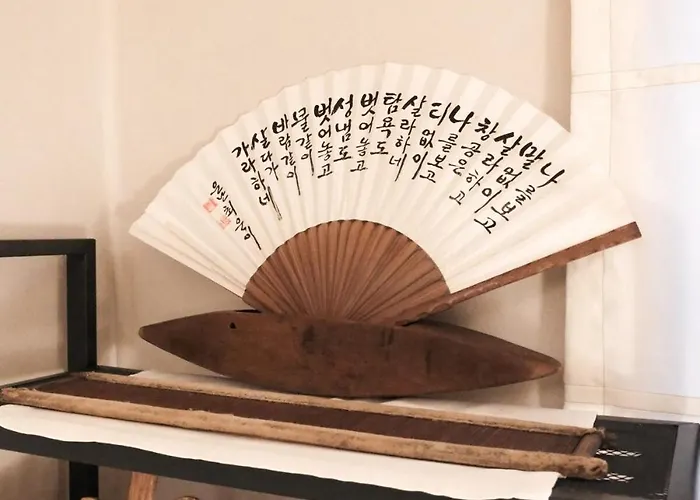 나를보고
말없이
살라하고
창공은
나를보고
티없이
살라하네
탐욕도
벗어놓고
성냄도
벗어놓고
물같이
바람같이
살다가
가라하네